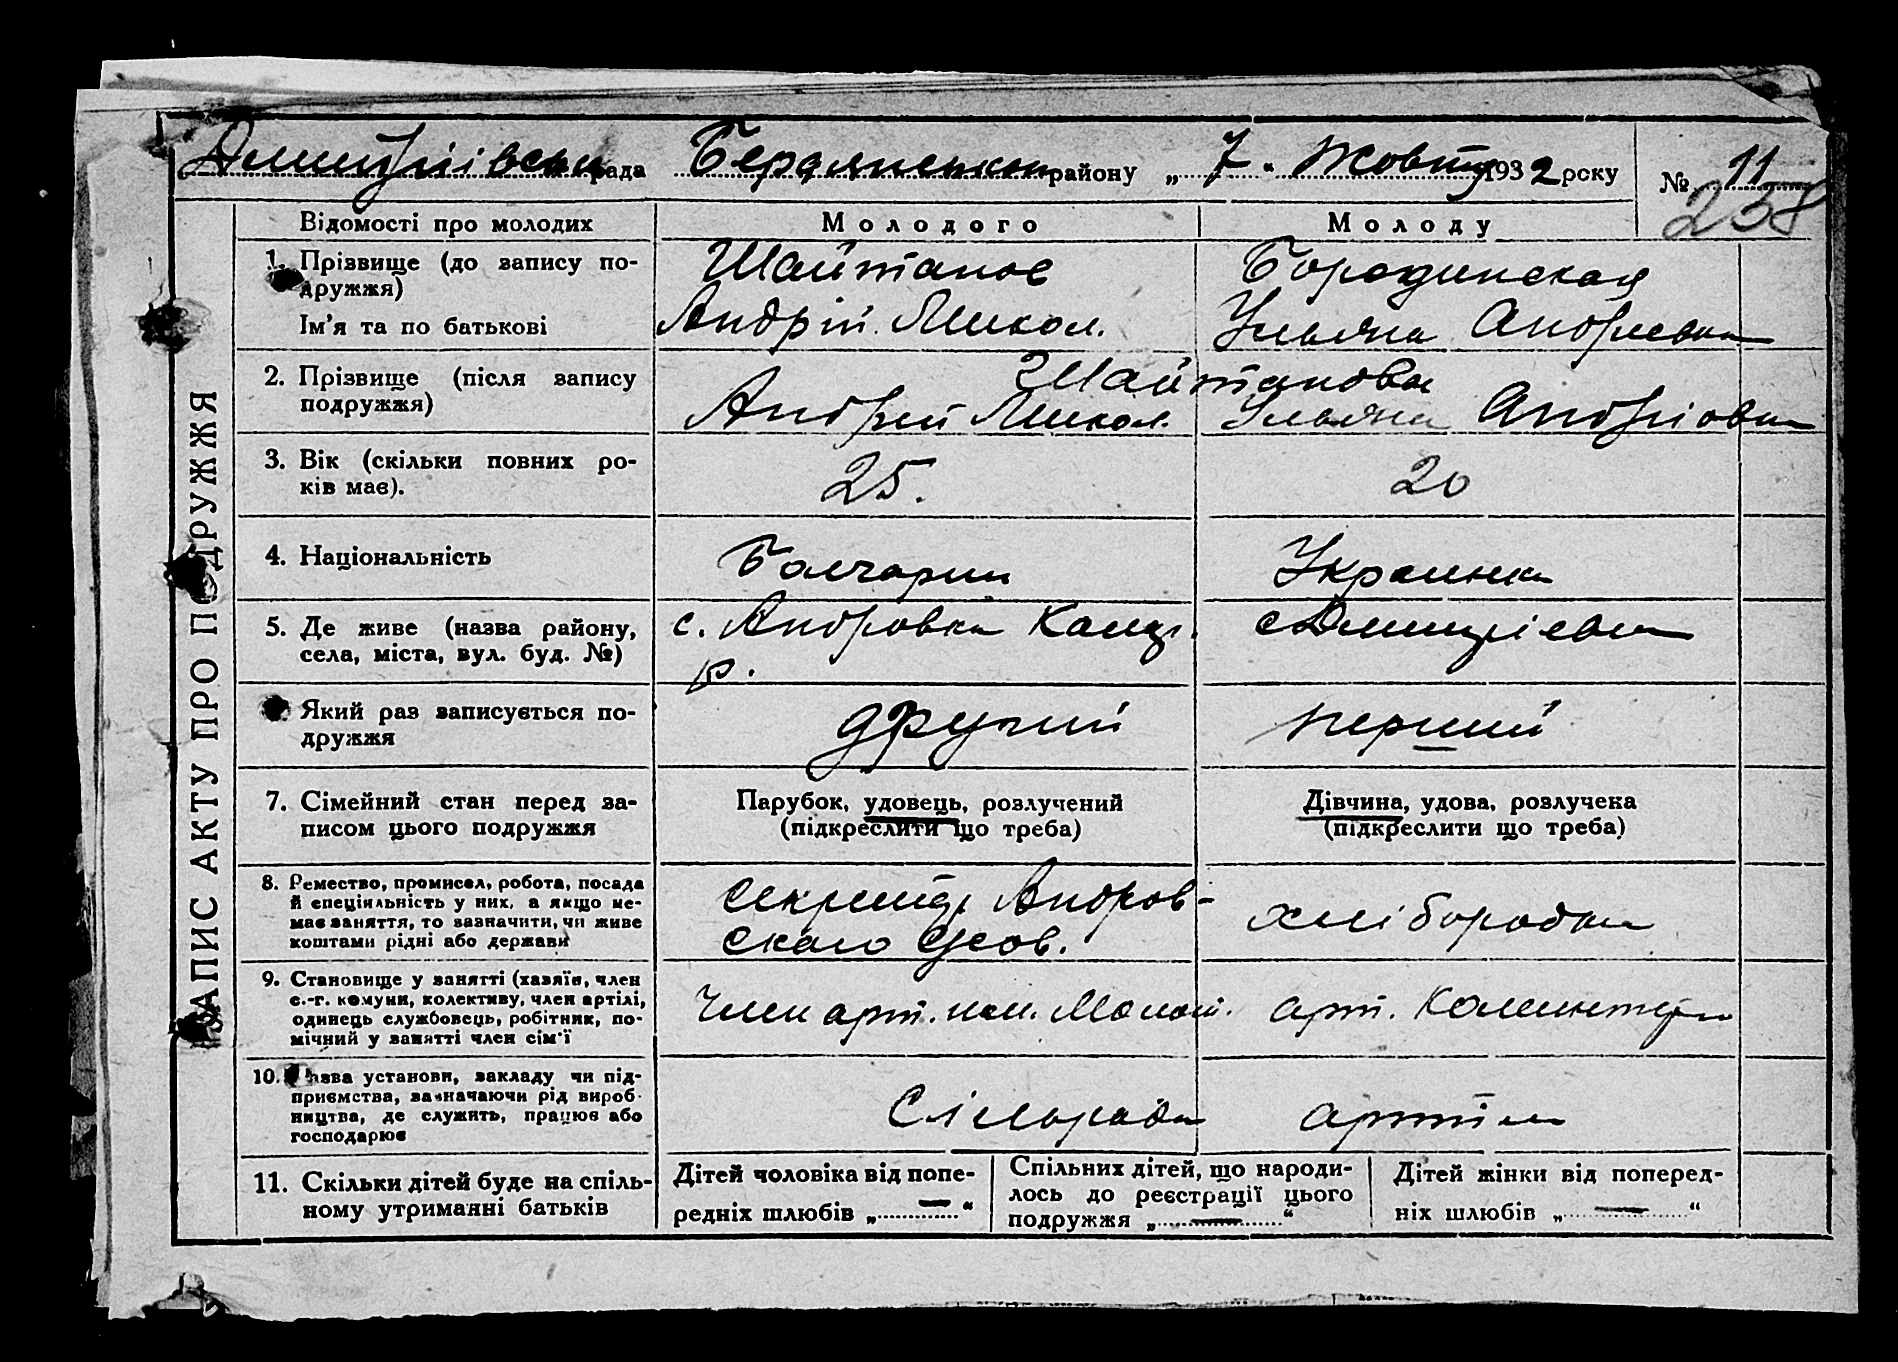 Дмитріївська рада Бердянського району „ 7 “ Жовтн 1932 року № 11
238
ЗАПИС АКТУ ПРО ПОДРУЖЖЯ
Відомості про молодих Молодого Молоду
1. Прізвище (до запису по-
дружжя)
Шайтанов Бородинская
Ім’я та по батькові Андрій Микол. Ульяна Андреевна
2. Прізвище (після запису
подружжя)
Шайтановы
Андрей Микол. Ульяна Андріовна
3. Вік (скільки повних ро-
ків має).
25. 20
4. Національність Болгарин Украинка
5. Де живе (назва району,
села, міста, вул. буд. №)
с. Андровка
р.
с Дмитрієвка
Який раз записується по-
дружжя
другий перший
7. Сімейний стан перед за-
писом цього подружжя
Парубок, удовець, розлучений
(підкреслити що треба)
Дівчина, удова, розлучена
(підкреслити що треба)
8. Ремество, промисел, робота, посада
й спеціяльність у них, а якщо не-
має заняття, то зазначити, чи живе
коштами рідні або держави
Секретар Андров-
ского
хліборобка
9. Становище у занятті (хазяїн, член
с.-г. комуни, колективу, член артілі,
одинець службовець, робітник, по-
мічний у занятті член сім’ї
Член арт. им. арт. Коминтерн
10. Назва установи, закладу чи під-
приємства, зазначаючи рід вироб-
ництва, де служить, працює або
господарює
Сільрада артіль
11. Скільки дітей буде на спіль-
ному утриманні батьків
Дітей чоловіка від попе-
редніх шлюбів „ — “
Спільних дітей, що народи-
лось до реєстрації цього
подружжя „ — “
Дітей жінки від поперед-
ніх шлюбів „ — “